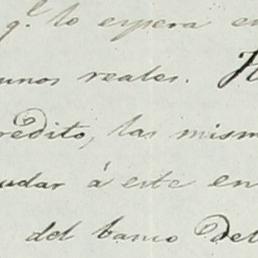 q.^l lo espera en
unos reales.
redito, las mism
udar á este en
del banco Del